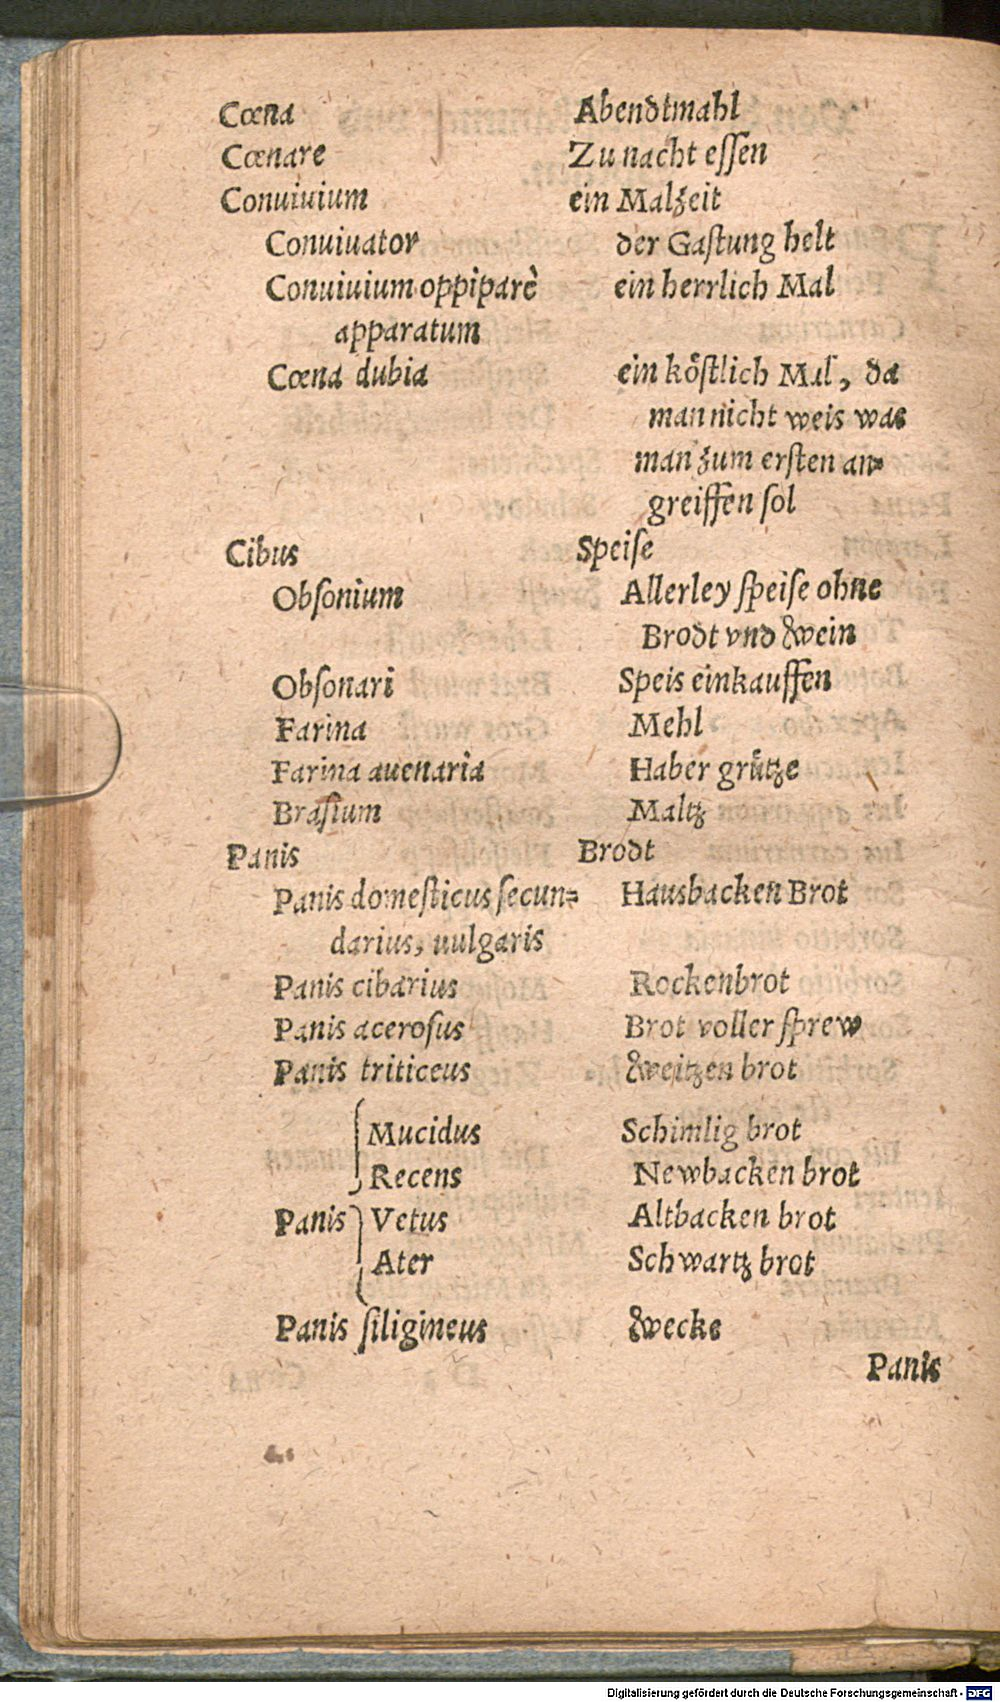 Cœna Abendtmahl
Cœnare Zu nacht eſſen
Conuiuium ein Malzeit
Conuiuator der Gaſtung helt
Conuiuium oppiparè ein herrlich Mal
apparatum
Cœna dubia ein köſtlich Mal, da
man nicht weis was
man zum erſten an=
greiffen ſol
Cibus Speiſe
Obſonium Allerley ſpeiſe ohne
Brodt vnd Wein
Obſonari Speis einkauffen
Farina Mehl
Farina auenaria Haber grütze
Braſium Maltz
Panis Brodt
Panis domeſticus ſecun= Hausbacken Brot
darius, uulgaris
Panis cibarius Rockenbrot
Panis aceroſus Brot voller ſprew
Panis triticeus Weitzen brot
Mucidus Schimlig brot
Recens Newbacken brot
Panis Vetus Altbacken brot
Ater Schwartz brot
Panis ſiligineus Wecke
Panis
Digitalisierung gefördert durch die Deutsche Forschungsgemeinschaft - DFG